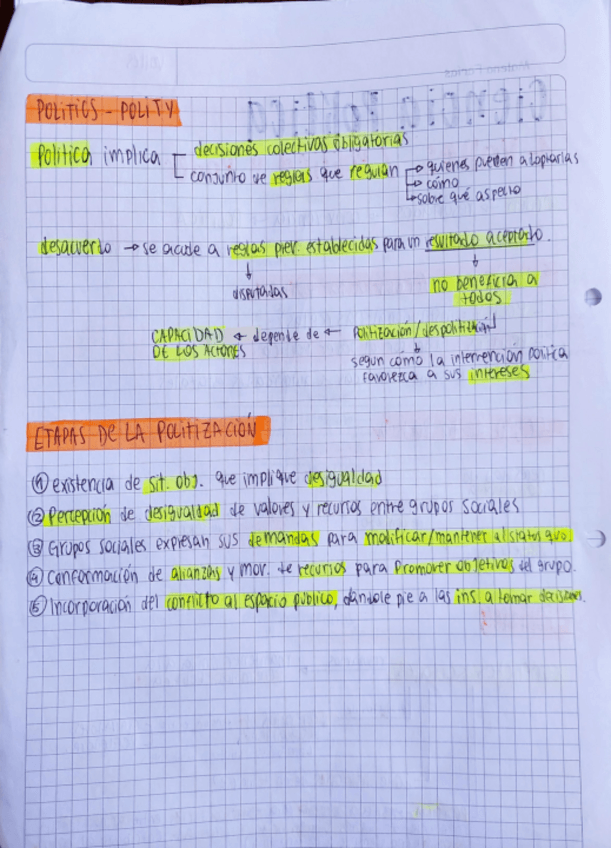 POLITICS - POLITY
Política implica
decisiones colectivas obligatorias
conjunto de reglas que regulan
quienes pueden adoptarlas
cómo
sobre qué aspecto
desacuerdo → se acude a reglas prev. establecidas para un resultado aceptado.
disputadas
no beneficia a
todos
CAPACIDAD ← depende de ← politización/despolitización
DE LOS ACTORES
segun cómo la intervención política
favorezca a sus intereses
ETAPAS DE LA POLITIZACIÓN
① existencia de sit. obj. que implique desigualdad
② Percepción de desigualdad de valores y recursos entre grupos sociales
③ Grupos sociales expresan sus demandas para modificar/mantener al status quo.
④ Conformación de alianzas y mov. de recursos para promover objetivos del grupo.
⑤ Incorporación del conflicto al espacio público, dándole pie a las ins. a tomar decisiones.
Ciencia Política